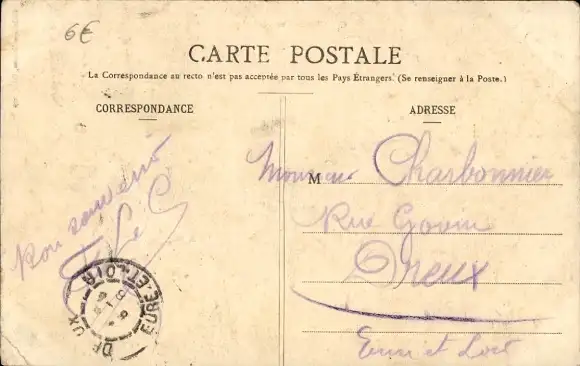 6€
CARTE POSTALE
La Correspondance au recto n'est pas acceptée par tous les Pays Étrangers. (Se renseigner à la Poste.)
CORRESPONDANCE
Bon souvenir
DREUX
EURE-ET-LOIR
ADRESSE
M
Monsieur Charbonnier
Rue Govin
Dreux
Eure et Loir